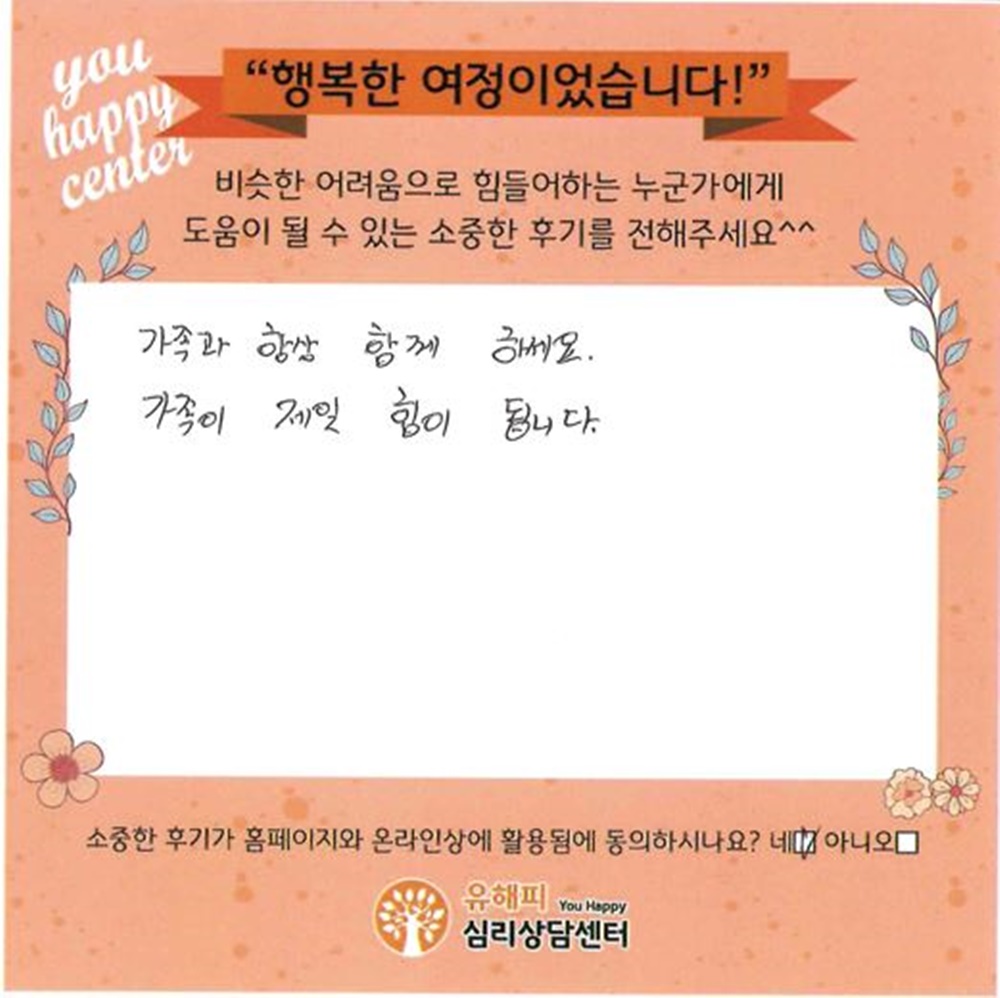 you
happy
center
“행복한 여정이었습니다!”
비슷한 어려움으로 힘들어하는 누군가에게
도움이 될 수 있는 소중한 후기를 전해주세요^^
가족과 항상 함께 하세요.
가족이 제일 힘이 됩니다.
소중한 후기가 홈페이지와 온라인상에 활용됨에 동의하시나요? 네☑ 아니오☐
유해피 You Happy
심리상담센터